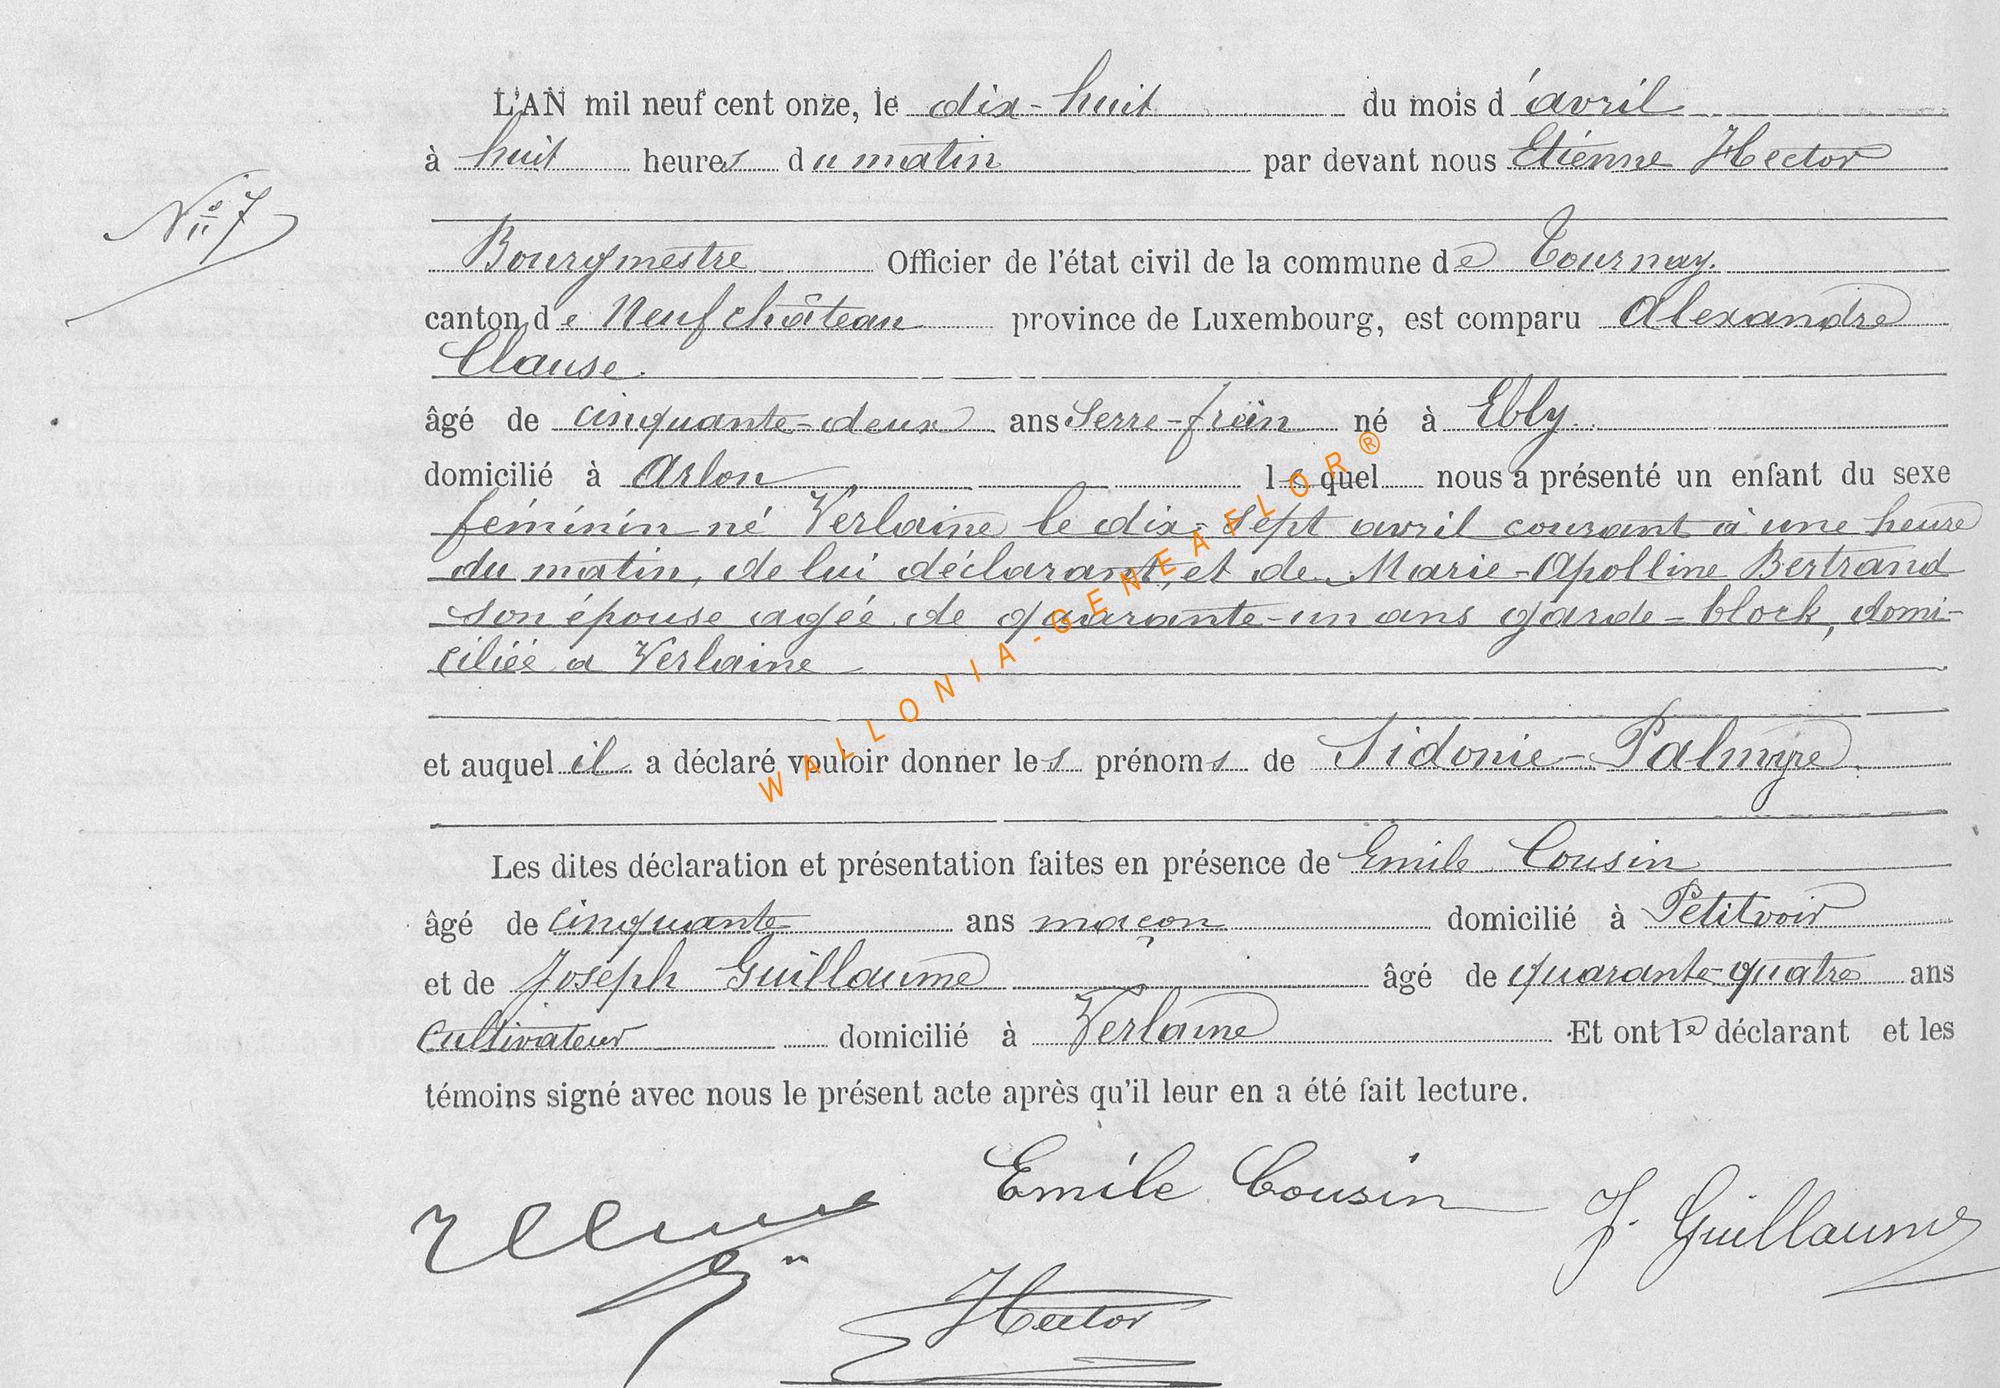 L'AN mil neuf cent onze, le dix-huit du mois d'avril
à huit heures du matin par devant nous Etienne Hector
N° 7
Bourgmestre Officier de l'état civil de la commune de Tournay.
canton de Neufchâteau province de Luxembourg, est comparu Alexandre
Clause.
âgé de cinquante-deux ans Serre-frein né à Ebly.
domicilié à Arlon lequel nous a présenté un enfant du sexe
féminin né Verlaine le dix-sept avril courant à une heure
du matin, de lui déclarant et de Marie-Apolline Bertrand
son épouse agée de quarante-un ans garde-block, domi-
ciliée a Verlaine
et auquel il a déclaré vouloir donner les prénoms de Sidonie-Palmyre.
Les dites déclaration et présentation faites en présence de Emile Cousin
âgé de cinquante ans maçon domicilié à Petitvoir
et de Joseph Guillaume âgé de quarante-quatre ans
Cultivateur domicilié à Verlaine Et ont le déclarant et les
témoins signé avec nous le présent acte après qu'il leur en a été fait lecture.
Emile Cousin
J. Guillaume
Hector
WALLONIA-GENEAFLOR®